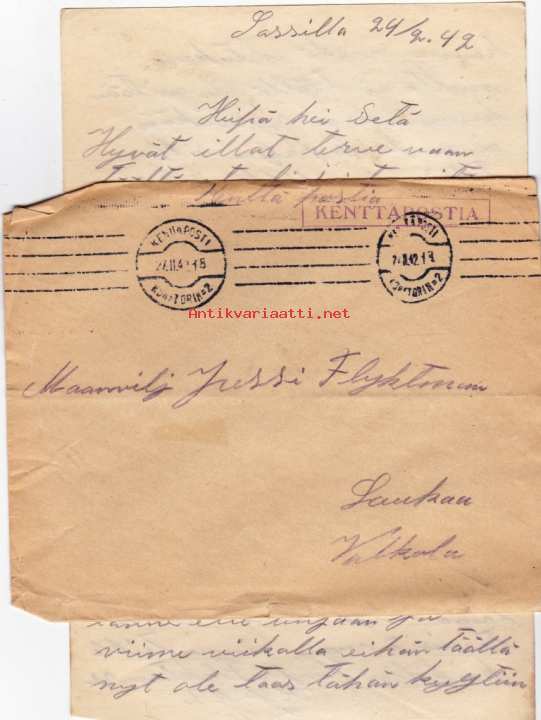 Sassilla 24/2.42
Heipä hei Setä
Hyvät illat terve vaan
Kenttä postia
KENTTÄPOSTIA
KENTTÄPOSTI
24.II.42.18
KONTTORI N:o 2
KENTTÄPOSTI
24.II.42.18
KONTTORI N:o 2
Antikvariaatti.net
Maanvilj Jussi Flyktman
Laukaa
Valkola
viime viikolla eihän täällä
nyt ole taas tähän kyytiin